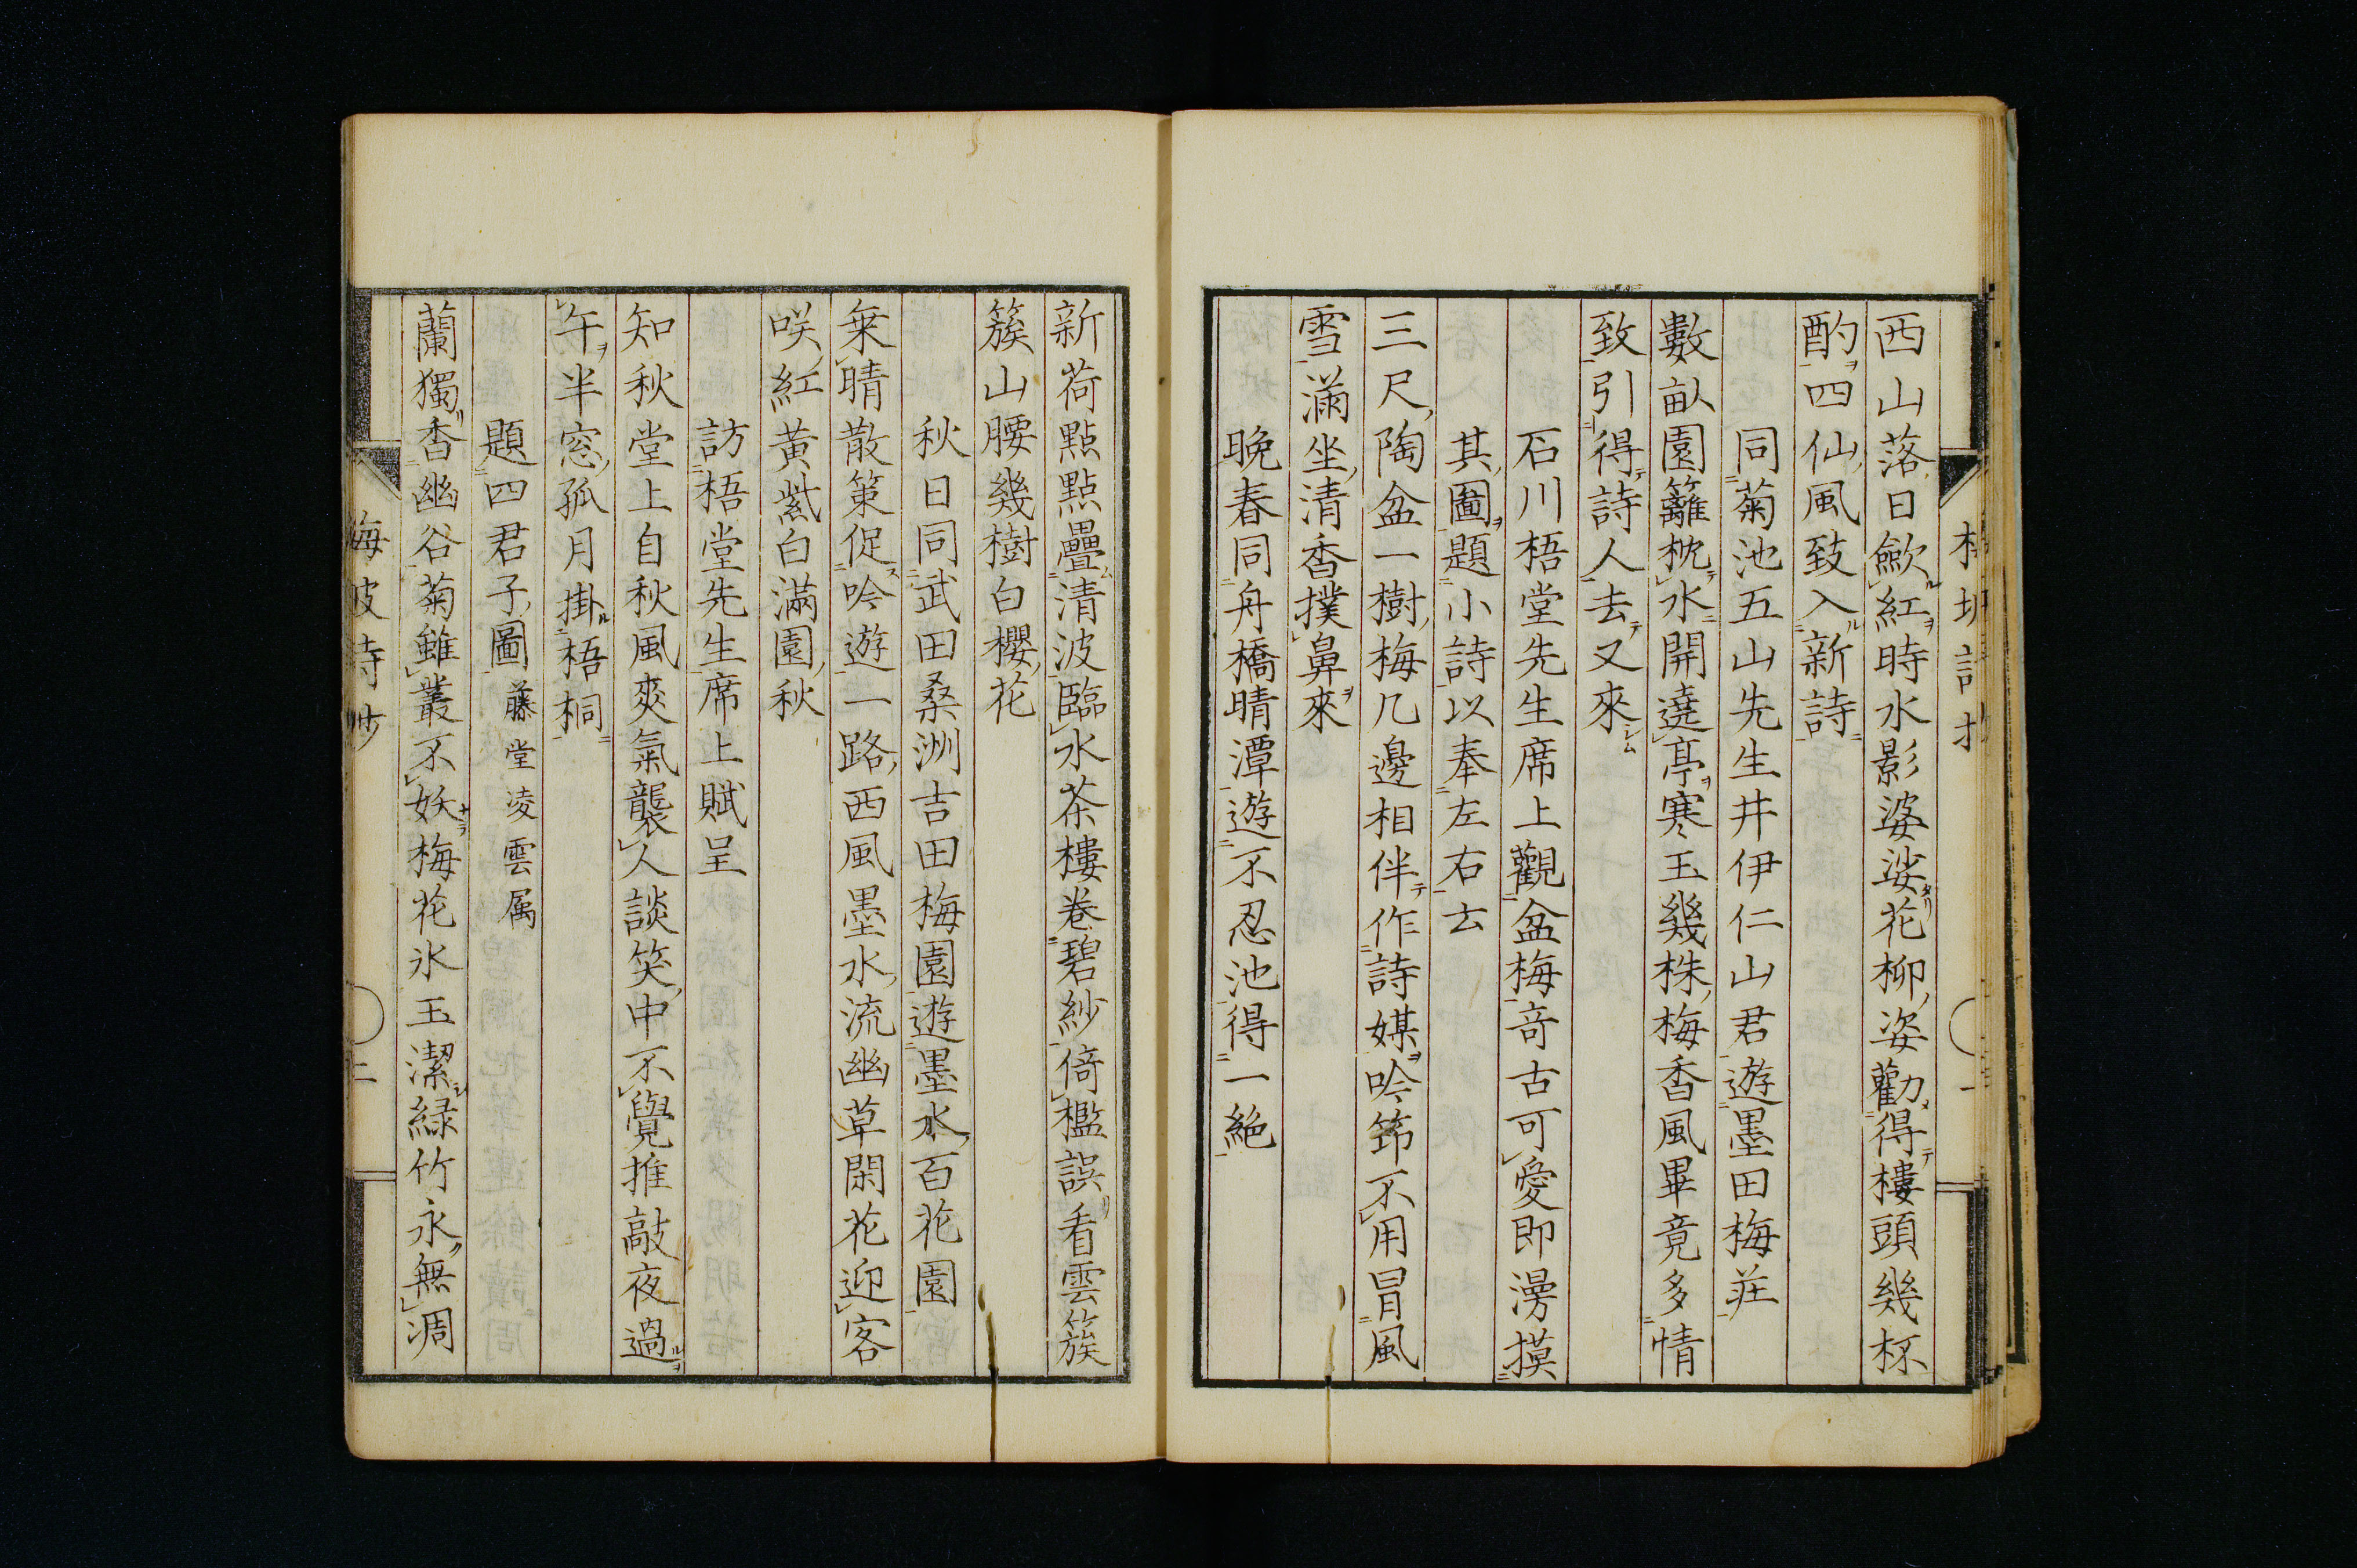 西山落日歛紅時水影婆娑花柳姿勸得樓頭幾杯
酌四仙風致入新詩
同菊池五山先生井伊仁山君遊墨田梅莊
數畝園籬枕水開遶亭寒玉幾株梅香風畢竟多情
致引得詩人去又來
石川梧堂先生席上觀盆梅竒古可愛即漫摸
其圖題小詩以奉左右去
三尺陶盆一樹梅几邊相伴作詩媒吟筇不用冒風
雪滿坐清香撲鼻來
晩春同舟橋晴潭遊不忍池得一絶
新荷點點疊清波臨水茶樓卷碧紗倚檻誤看雲簇
簇山腰幾樹白櫻花
秋日同武田桑洲吉田梅園遊墨水百花園
乗晴散策促吟遊一路西風墨水流幽草閑花迎客
咲紅黃紫白滿園秋
訪梧堂先生席上賦呈
知秋堂上自秋風爽氣襲人談笑中不覺推敲夜過
午半窓孤月掛梧桐
題四君子圖 藤堂凌雲属
蘭獨香幽谷菊雖叢不妖梅花氷玉潔緑竹永無凋
梅坡詩抄 二